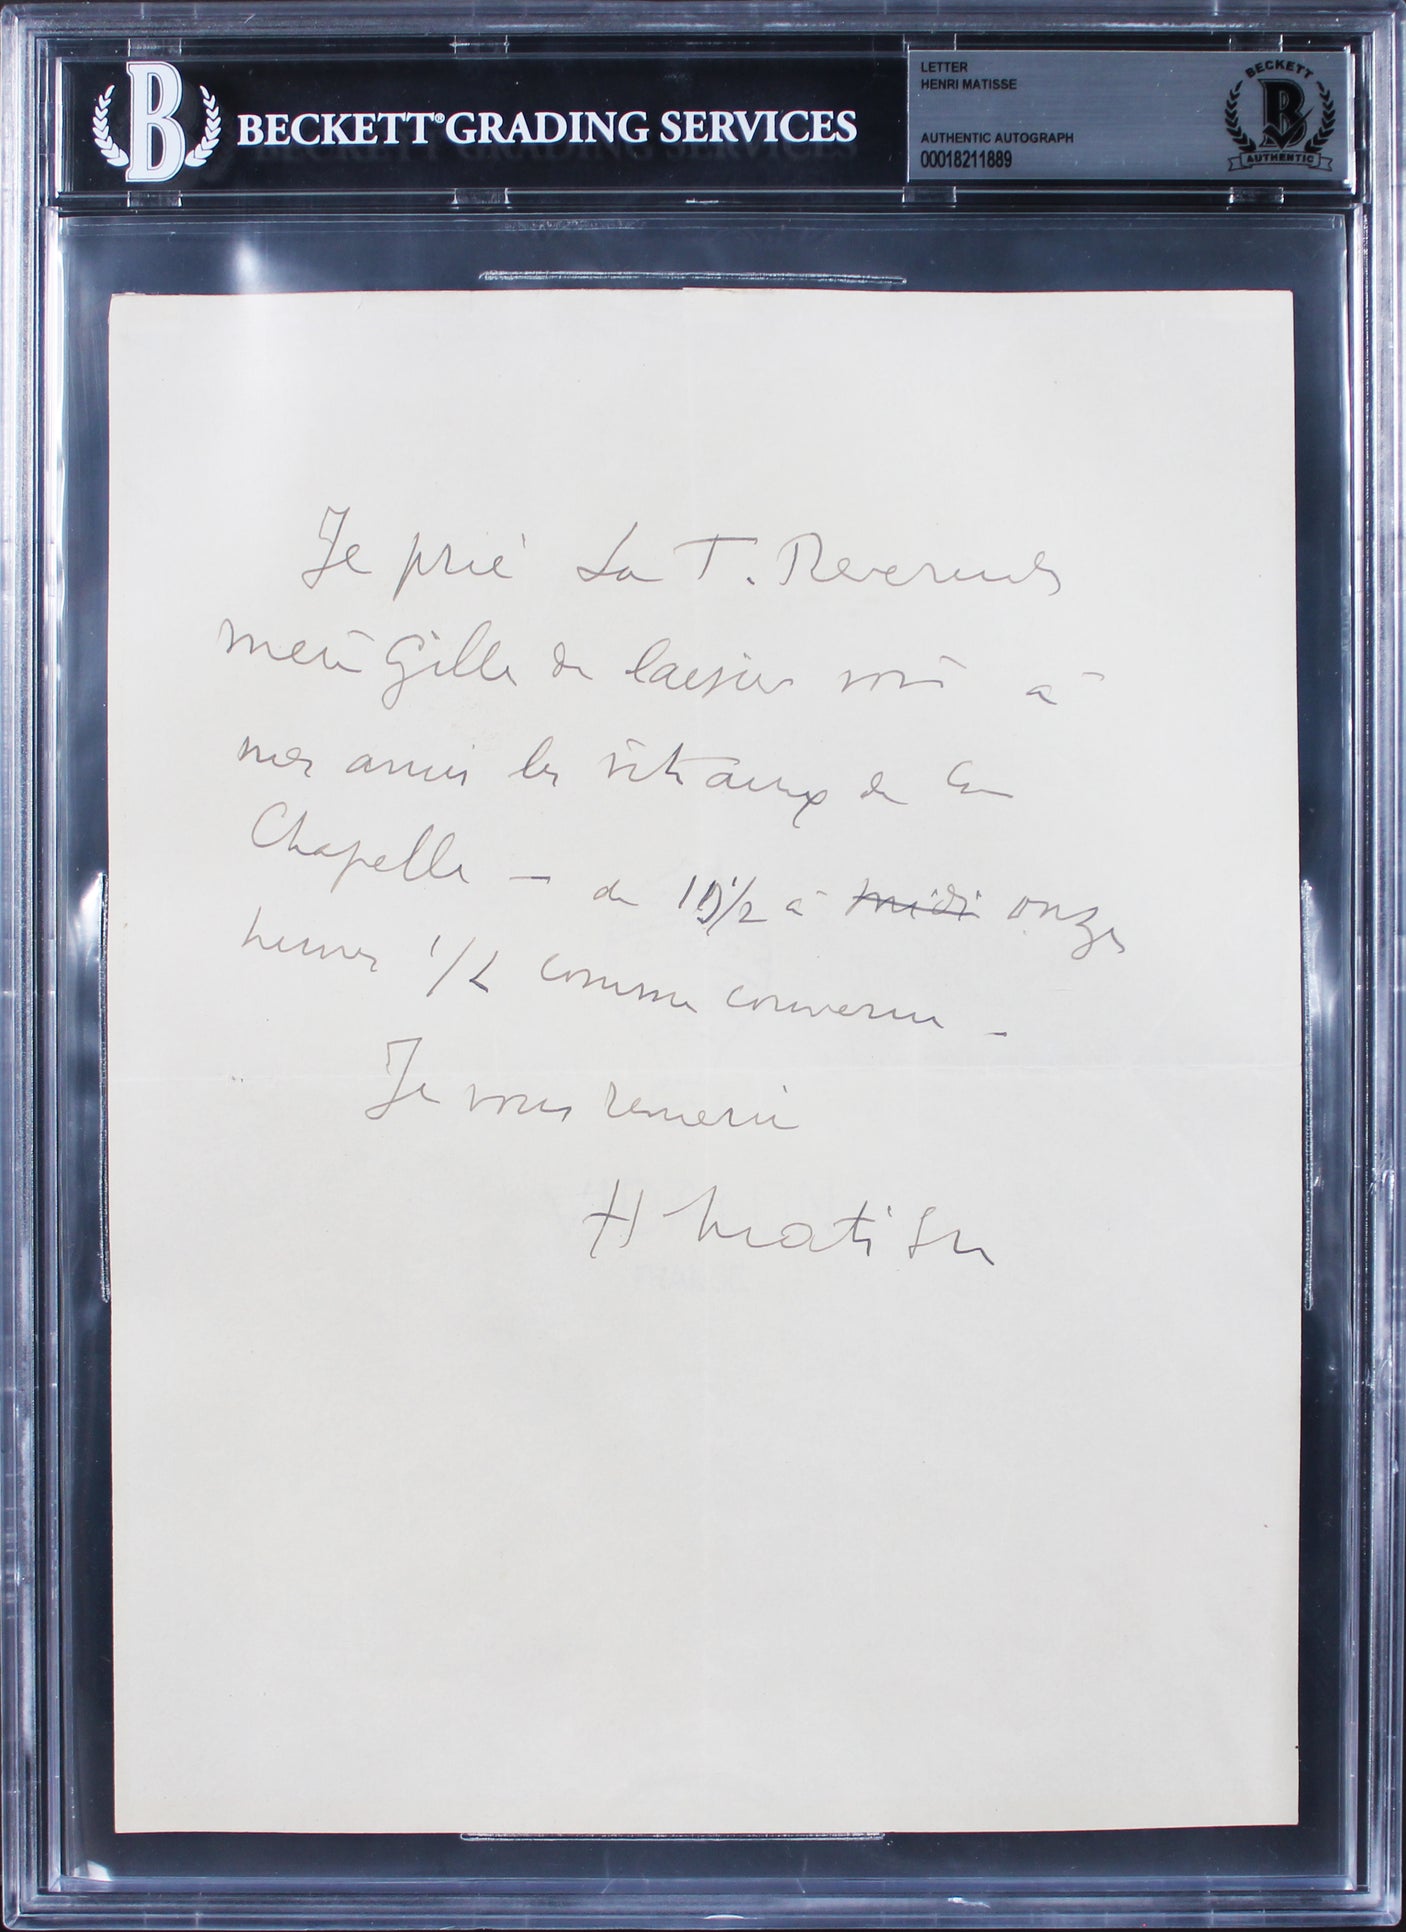 BECKETT® GRADING SERVICES
LETTER
HENRI MATISSE
AUTHENTIC AUTOGRAPH
00018211889
BECKETT
B
AUTHENTIC
B
Je prie La T. Reverende
mère Gille de laisser voir à
mes amis les vitraux de la
Chapelle – de 10 1/2 à midi onze
heures 1/2 comme convenu –
Je vous remercie
H Matisse